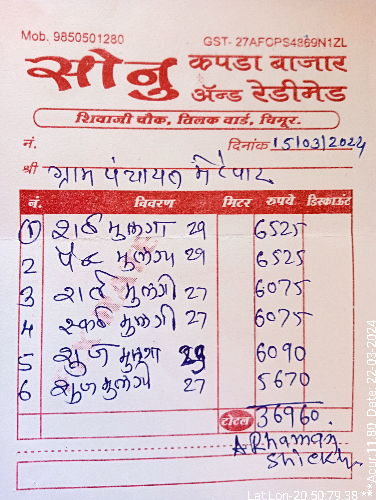 Mob. 9850501280 GST- 27AFCPS4869N1ZL
सोनु कपडा बाजार
ॲन्ड रेडीमेड
शिवाजी चौक, तिलक वार्ड, चिमूर.
नं. दिनांक 15/03/2024
श्री ग्राम पंचायत
नं. विवरण मिटर रुपये डिस्काऊंट
1 शर्ट मुलगा 29 6525
2 पॅन्ट मुलगा 29 6525
3 शर्ट मुलगी 27 6075
4 स्कर्ट मुलगी 27 6075
5 शुज मुलगा 29 6090
6 शुज मुलगी 27 5670
टोटल 36960.
ARhaman
Shiekh
Lat Lon-20.50,79.38
***Acur:11.80 Date: 22-03-2024